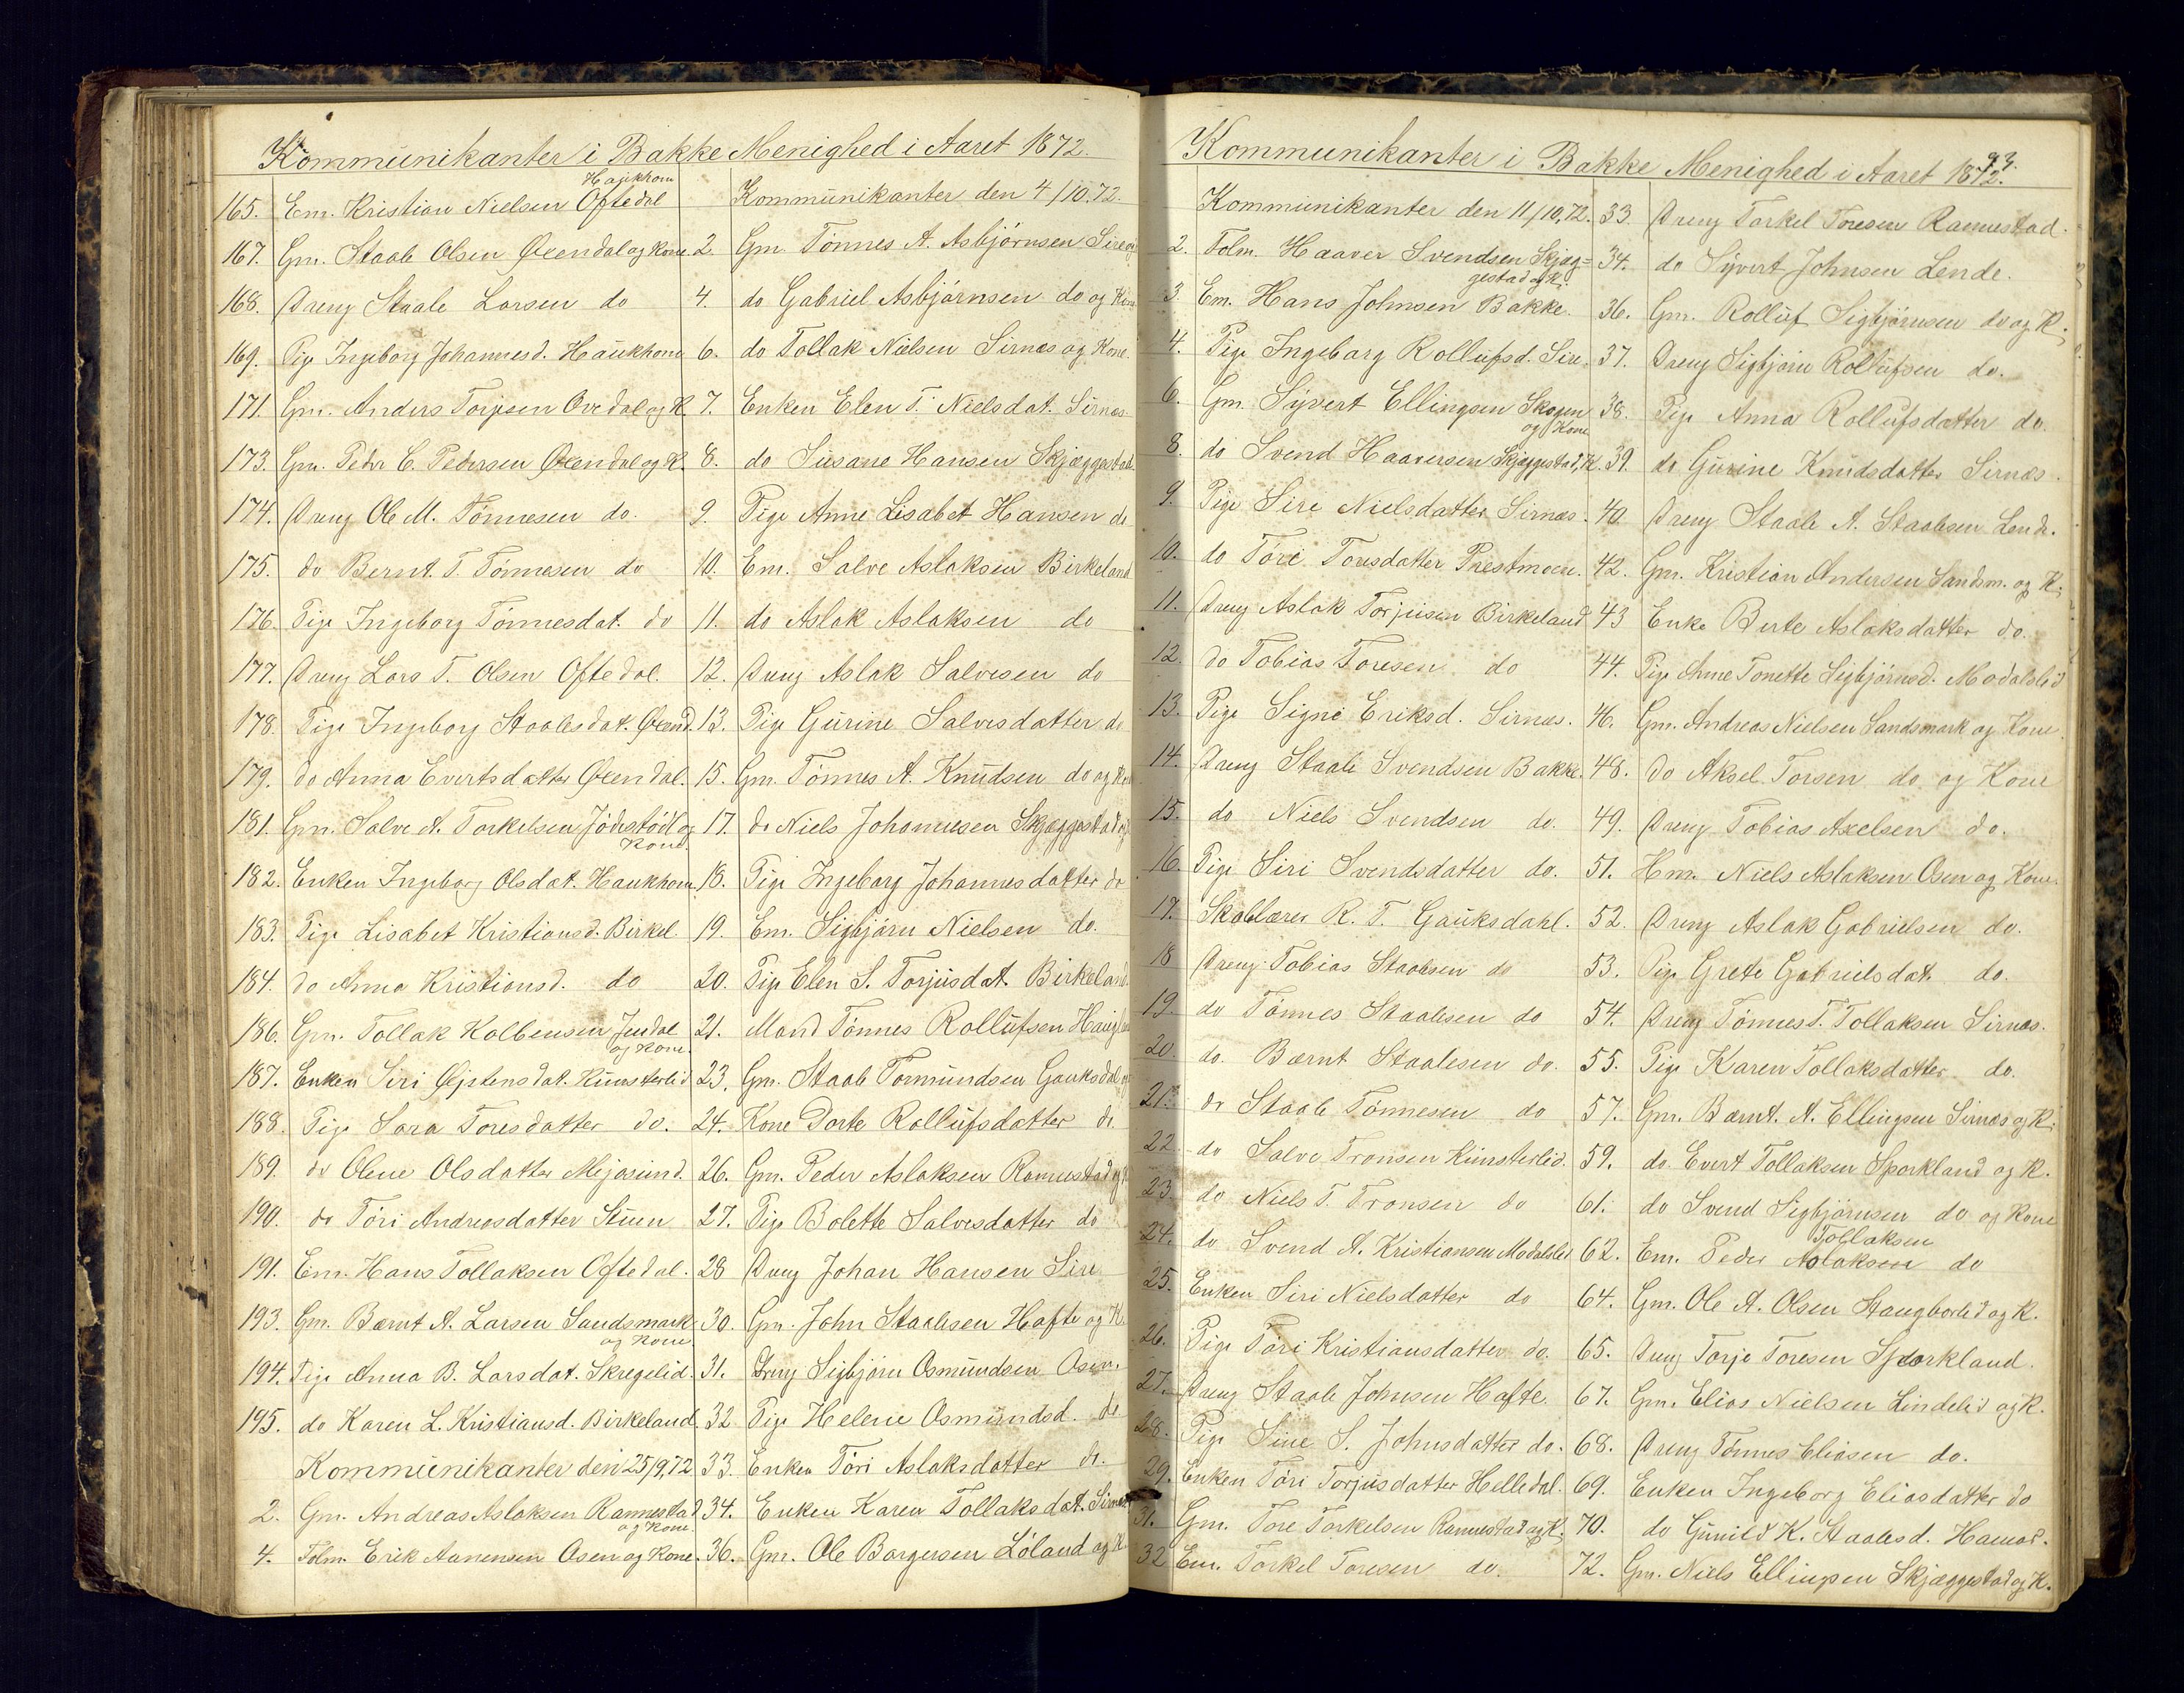 Kommunikanter i Bakke Menighed i Aaret 1872.
Haukhom
165. Em. Kristian Nielsen Oftedal
167. Gm. Staale Olsen Øxendal og Kone.
168. Dreng Staale Larsen do
169. Pige Ingeborg Johannesd. Haukhom
171. Gm. Anders Torjusen Ovedal og K.
173. Gm. Peder C. Pedersen Øxendal og K.
174. Dreng Ole M. Tönnesen do.
175. do Bernt. T. Tönnesen do
176. Pige Ingeborg Tönnesdat. do
177. Dreng Lars T. Olsen Oftedal.
178. Pige Ingeborg Staalesdat. Øxend.
179. do Anna Evertsdatter Øxendal.
181. Gm. Salve A. Torkelsen Jödestödl og
Kone.
182. Enken Ingeborg Olsdat. Haukhom.
183. Pige Lisabet Kristiansd. Birkel.
184. do Anna Kristiansd. do
186. Gm. Tollak Kolbensen Jendal
og Kone.
187. Enken Siri Øistensdat. Kunsterlid
188. Pige Sara Toresdatter do.
189. do Olene Olsdatter Mejasund.
190. do Töri Andreasdatter Stuen
191. Em. Hans Tollaksen Oftedal.
193. Gm. Bærnt A. Larsen Sandsmark
og Kone.
194. Pige Anna B. Larsdat. Skregelid.
195. do Karen L. Kristiansd. Birkeland
Kommunikanter den 25/9,72
2. Gm. Andreas Aslaksen Rannestad
og Kone
4. Folm. Erik Aanensen Osen og Kone.
Kommunikanter den 4/10.72.
2. Gm Tönnes A. Asbjörnsen Sire og
4. do Gabriel Asbjörnsen do og Kone
6. do Tollak Nielsen Sirnæs og Kone.
7. Enken Elen T. Nielsdat. Sirnæs
8. do Susane Hansen Skjæggestad.
9. Pige Anne Lisabet Hansen do
10. Em. Salve Aslaksen Birkeland
11. do Aslak Aslaksen do
12. Dreng Aslak Salvesen do
13. Pige Gurine Salvesdatter do
15. Gm. Tönnes A. Knudsen do og Kone
17. do Niels Johannesen Skjæggestad og
18. Pige Ingeborg Johannesdatter do
19. Em. Sigbjörn Nielsen do.
20. Pige Elen S. Torjusdat. Birkeland.
21. Mand Tönnes Rollufsen
23. Gm. Staale Tormundsen Gauksdal og
24. Kone Dorte Rollufsdatter do
26. Gm. Peder Aslaksen Rannestad og K
27. Pige Bolette Salvesdatter do
28 Dreng Johan Hansen Sire
30. Gm. John Staalesen Hafte og K.
31. Dreng Sigbjörn Osmundsen Osen.
32 Pige Helene Osmundsd. do
33. Enken Töri Aslaksdatter do.
34. Enken Karen Tollaksdat. Sirnæs
36. Gm. Ole Borgersen Löland og K.
Kommunikanter i Bakke Menighed i Aaret 1872.
93.
Kommunikanter den 11/10,72.
2. Folm. Haaver Svendsen Skjæg=
gestad og K.
3 Em. Hans Johnsen Bakke.
4. Pige Ingeborg Rollufsd. Sire.
6. Gm. Syvert Ellingsen Skogen
og Kone
8. do Svend Haaversen Skjæggestad, K.
9. Pige Siri Nielsdatter Sirnæs.
10. do Töri Toresdatter Prestmoen.
11. Dreng Aslak Torjusen Birkeland
12. do Tobias Toresen do
13. Pige Signe Eriksd. Sirnæs.
14. Dreng Staale Svendsen Bakke.
15. do Niels Svendsen do.
16. Pige Siri Svendsdatter do.
17. Skolelærer R. T. Gauksdahl.
18 Dreng Tobias Staalesen do
19. do Tönnes Staalesen do
20. do. Bærnt Staalesen do.
21. do Staale Tönnesen do
22. do Salve Tronsen Kunsterlid.
23. do Niels T. Tronsen do
24. do Svend A. Kristiansen Modalslid
25. Enken Siri Nielsdatter do
26. Pige Töri Kristiansdatter do.
27. Dreng Staale Johnsen Hafte.
28. Pige Sine S. Johnsdatter do.
29. Enken Töri Torjusdatter Helledal.
31. Gm. Tore Torkelsen Rannestad og K.
32 Em. Torkel Toresen do.
33. Dreng Torkel Toresen Rannestad.
34. do Syvert Johnsen Lende.
36. Gm. Rolluf Sigbjörnsen do og K.
37. Dreng Sigbjörn Rollufsen do.
38. Pige Anna Rollufsdatter do.
39. do Gurine Knudsdatter Sirnæs.
40. Dreng Staale A. Staalesen Lende.
42. Gm. Kristian Andersen Sandsm. og K.
43 Enke Berte Aslaksdatter do.
44. Pige Anne Tonette Sigbjörnsd. Modalslid
46. Gm. Andreas Nielsen Sandsmark og Kone.
48. do Aksel Torsen do. og Kone
49. Dreng Tobias Axelsen do.
51. Hm. Niels Aslaksen Osen og Kone.
52. Dreng Aslak Gabrielsen do.
53. Pige Grete Gabrielsdat. do.
54. Dreng Tönnes T. Tollaksen Sirnæs.
55. Pige Karen Tollaksdatter do.
57. Gm. Bærnt. A. Ellingsen Sirnæs og K.
59. do. Evert Tollaksen Sporkland og K.
61. do Svend Sigbjörnsen do og Kone
Tollaksen
62. Em. Peder Aslaksen do
64. Gm. Ole A. Olsen Haugborlid og K.
65. Dreng Torje Toresen Sporkland.
67. Gm. Elias Nielsen Lindelid og K.
68. Dreng Tönnes Eliasen do.
69. Enken Ingeborg Eliasdatter do
70. do Gunild K. Staalesd. Hamar.
72. Gm. Niels Ellingsen Skjæggestad og K.